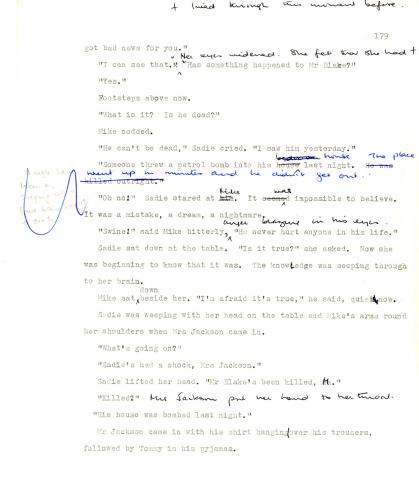 I lived through this moment before.
179
got bad news for you."
Her eyes widened. She felt that she had
"I can see that." "Has something happened to Mr Blake?"
"Yes."
Footsteps above now.
"What is it? Is he dead?"
Mike nodded.
"He can't be dead," Sadie cried. "I saw him yesterday."
house The place
"Someone threw a petrol bomb into his house last night. He was
went up in minutes and he didn't get out.
killed outright."
Mike was
"Oh no!" Sadie stared at him. It seemed impossible to believe.
It was a mistake, a dream, a nightmare.
anger blazing in his eyes.
"Swine!" said Mike bitterly, "He never hurt anyone in his life."
Sadie sat down at the table. "Is it true?" she asked. Now she
was beginning to know that it was. The knowledge was seeping through
to her brain.
down
Mike sat beside her. "I'm afraid it's true," he said, quiet now.
Sadie was weeping with her head on the table and Mike's arms round
her shoulders when Mrs Jackson came in.
"What's going on?"
"Sadie's had a shock, Mrs Jackson."
Sadie lifted her head. "Mr Blake's been killed, Ma."
"Killed?" Mrs Jackson put her hand to her throat.
"His house was bombed last night."
Mr Jackson came in with his shirt hanging over his trousers,
followed by Tommy in his pyjamas.